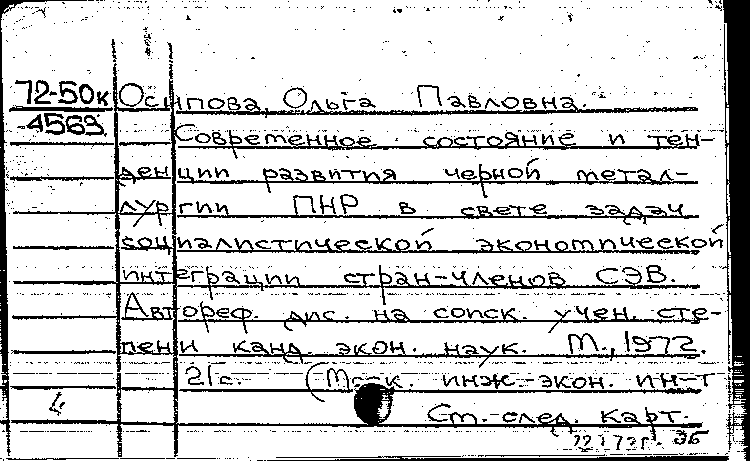 72-50к Осипова, Ольга Павловна.
4569. Современное состояние и тен-
денции развития черной метал-
лургии ПНР в свете задач
социалистической экономической
интеграции стран-членов СЭВ.
Автореф. дис. на соиск. учен. сте-
пени канд. экон. наук. М., 1972.
21 с. (Моск. инж.-экон. ин-т
См. след. карт.